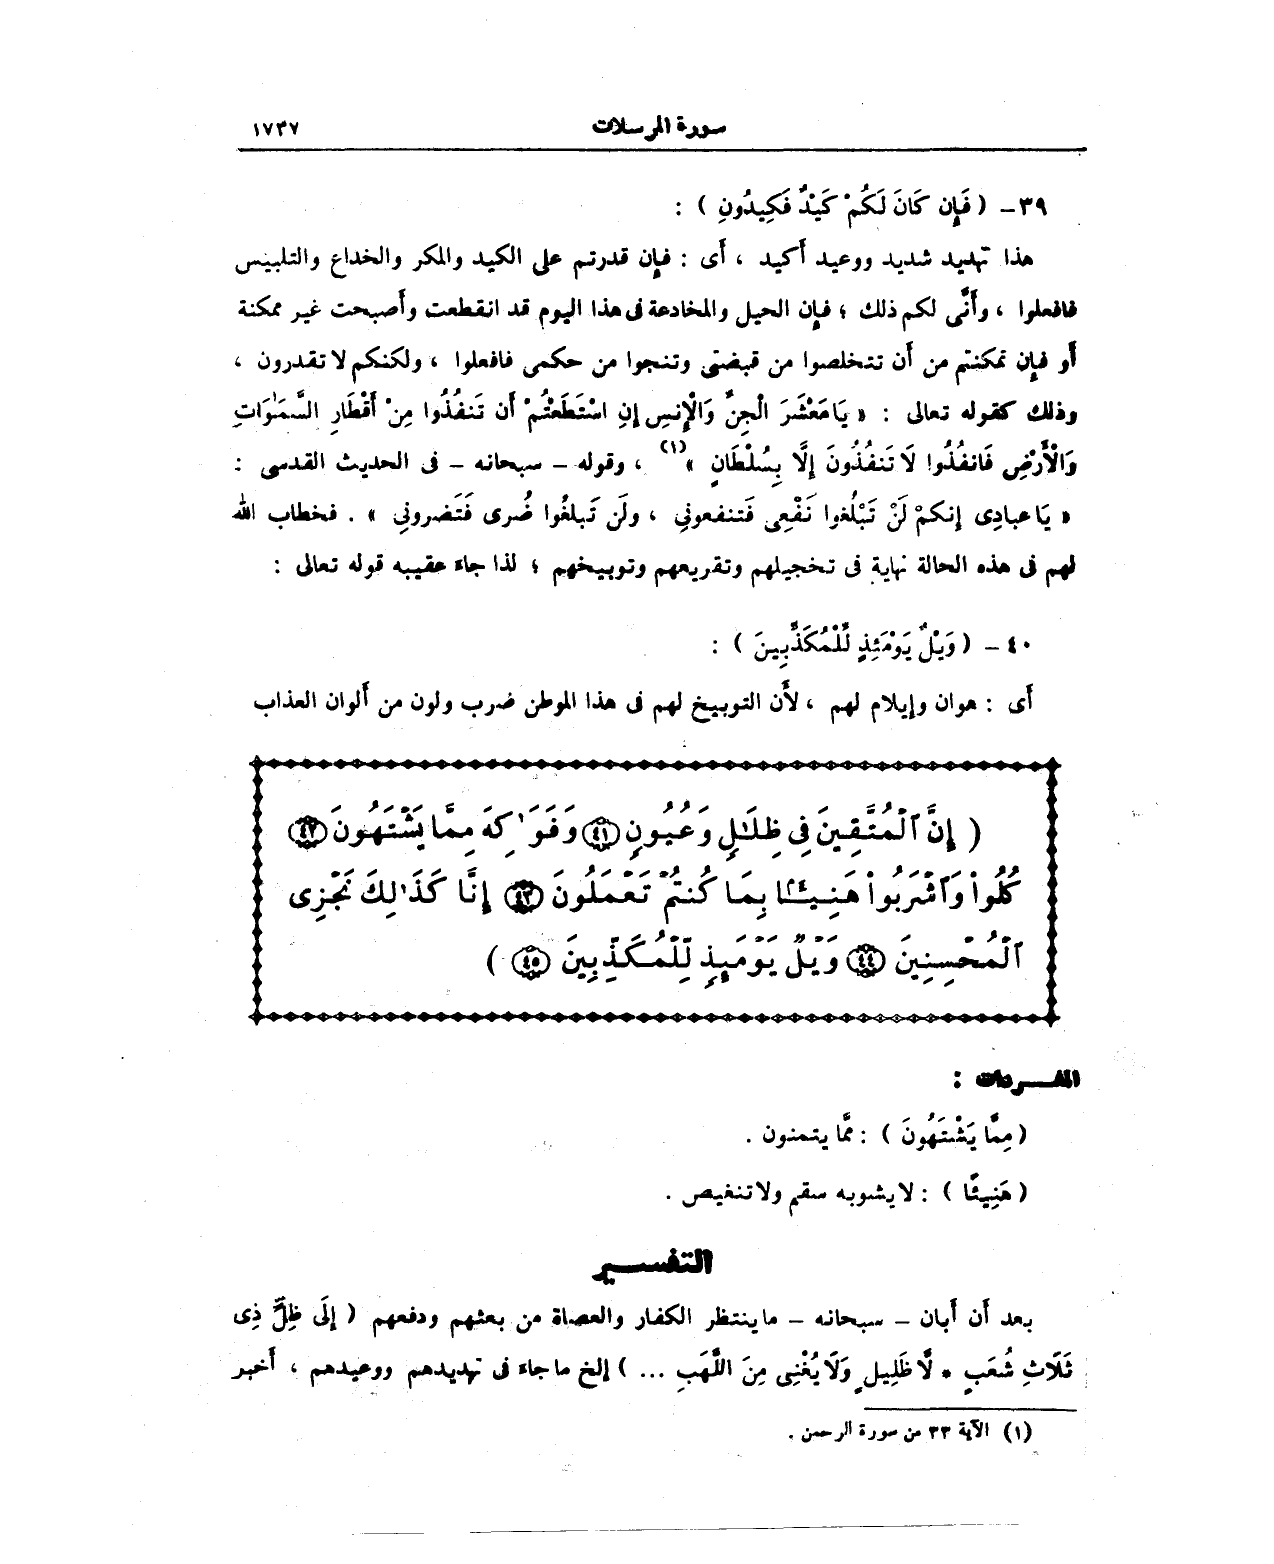 سورة المرسلات ١٧٣٧
٣٩– ( فَإِن كَانَ لَكُمْ كَيْدٌ فَكِيدُونِ ) :
هذا تهديد شديد ووعيد أكيد ، أى : فإن قدرتم على الكيد والمكر والخداع والتلبيس
فافعلوا ، وأنَّى لكم ذلك ؛ فإن الحيل والمخادعة فى هذا اليوم قد انقطعت وأصبحت غير ممكنة
أو فإن تمكنتم من أن تتخلصوا من قبضتى وتنجوا من حكمى فافعلوا ، ولكنكم لا تقدرون ،
وذلك كقوله تعالى : « يَا مَعْشَرَ الْجِنِّ وَالْإِنسِ إِنِ اسْتَطَعْتُمْ أَن تَنفُذُوا مِنْ أَقْطَارِ السَّمٰوَاتِ
وَالْأَرْضِ فَانفُذُوا لَا تَنفُذُونَ إِلَّا بِسُلْطَانٍ »(١) ، وقوله – سبحانه – فى الحديث القدسى :
« يَا عبادِى إنكمْ لَنْ تَبْلُغوا نَفْعِى فَتنفعونِى ، ولَن تَبلغُوا ضُرى فَتَضرونِى » . فخطاب الله
لهم فى هذه الحالة نهاية فى تخجيلهم وتقريعهم وتوبيخهم ؛ لذا جاء عقيبه قوله تعالى :
٤٠ – ( وَيْلٌ يَوْمَئِذٍ لِّلْمُكَذِّبِينَ ) :
أى : هوان وإيلام لهم ، لأن التوبيخ لهم فى هذا الموطن ضرب ولون من ألوان العذاب
( إِنَّ ٱلْمُتَّقِينَ فِى ظِلَٰلٍ وَعُيُونٍ ٤١ وَفَوَٰكِهَ مِمَّا يَشْتَهُونَ ٤٢
كُلُوا۟ وَٱشْرَبُوا۟ هَنِيٓـًٔا بِمَا كُنتُمْ تَعْمَلُونَ ٤٣ إِنَّا كَذَٰلِكَ نَجْزِى
ٱلْمُحْسِنِينَ ٤٤ وَيْلٌ يَوْمَئِذٍ لِّلْمُكَذِّبِينَ ٤٥ )
المفـردات :
( مِمَّا يَشْتَهُونَ ) : ممَّا يتمنون .
( هَنِيئًا ) : لا يشوبه سقم ولا تنغيص .
التفسـير
بعد أن أبان – سبحانه – ما ينتظر الكفار والعصاة من بعثهم ودفعهم ( إِلَى ظِلٍّ ذِى
ثَلَاثِ شُعَبٍ * لَّا ظَلِيلٍ وَلَا يُغْنِى مِنَ اللَّهَبِ ... ) إلخ ما جاء فى تهديدهم ووعيدهم ، أخبر
(١) الآية ٣٣ من سورة الرحمن .